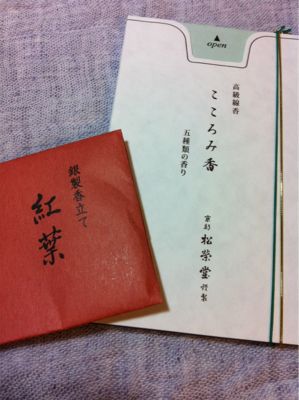 open
高級線香
こころみ香
五種類の香り
京都 松榮堂 謹製
銀製香立て
紅葉